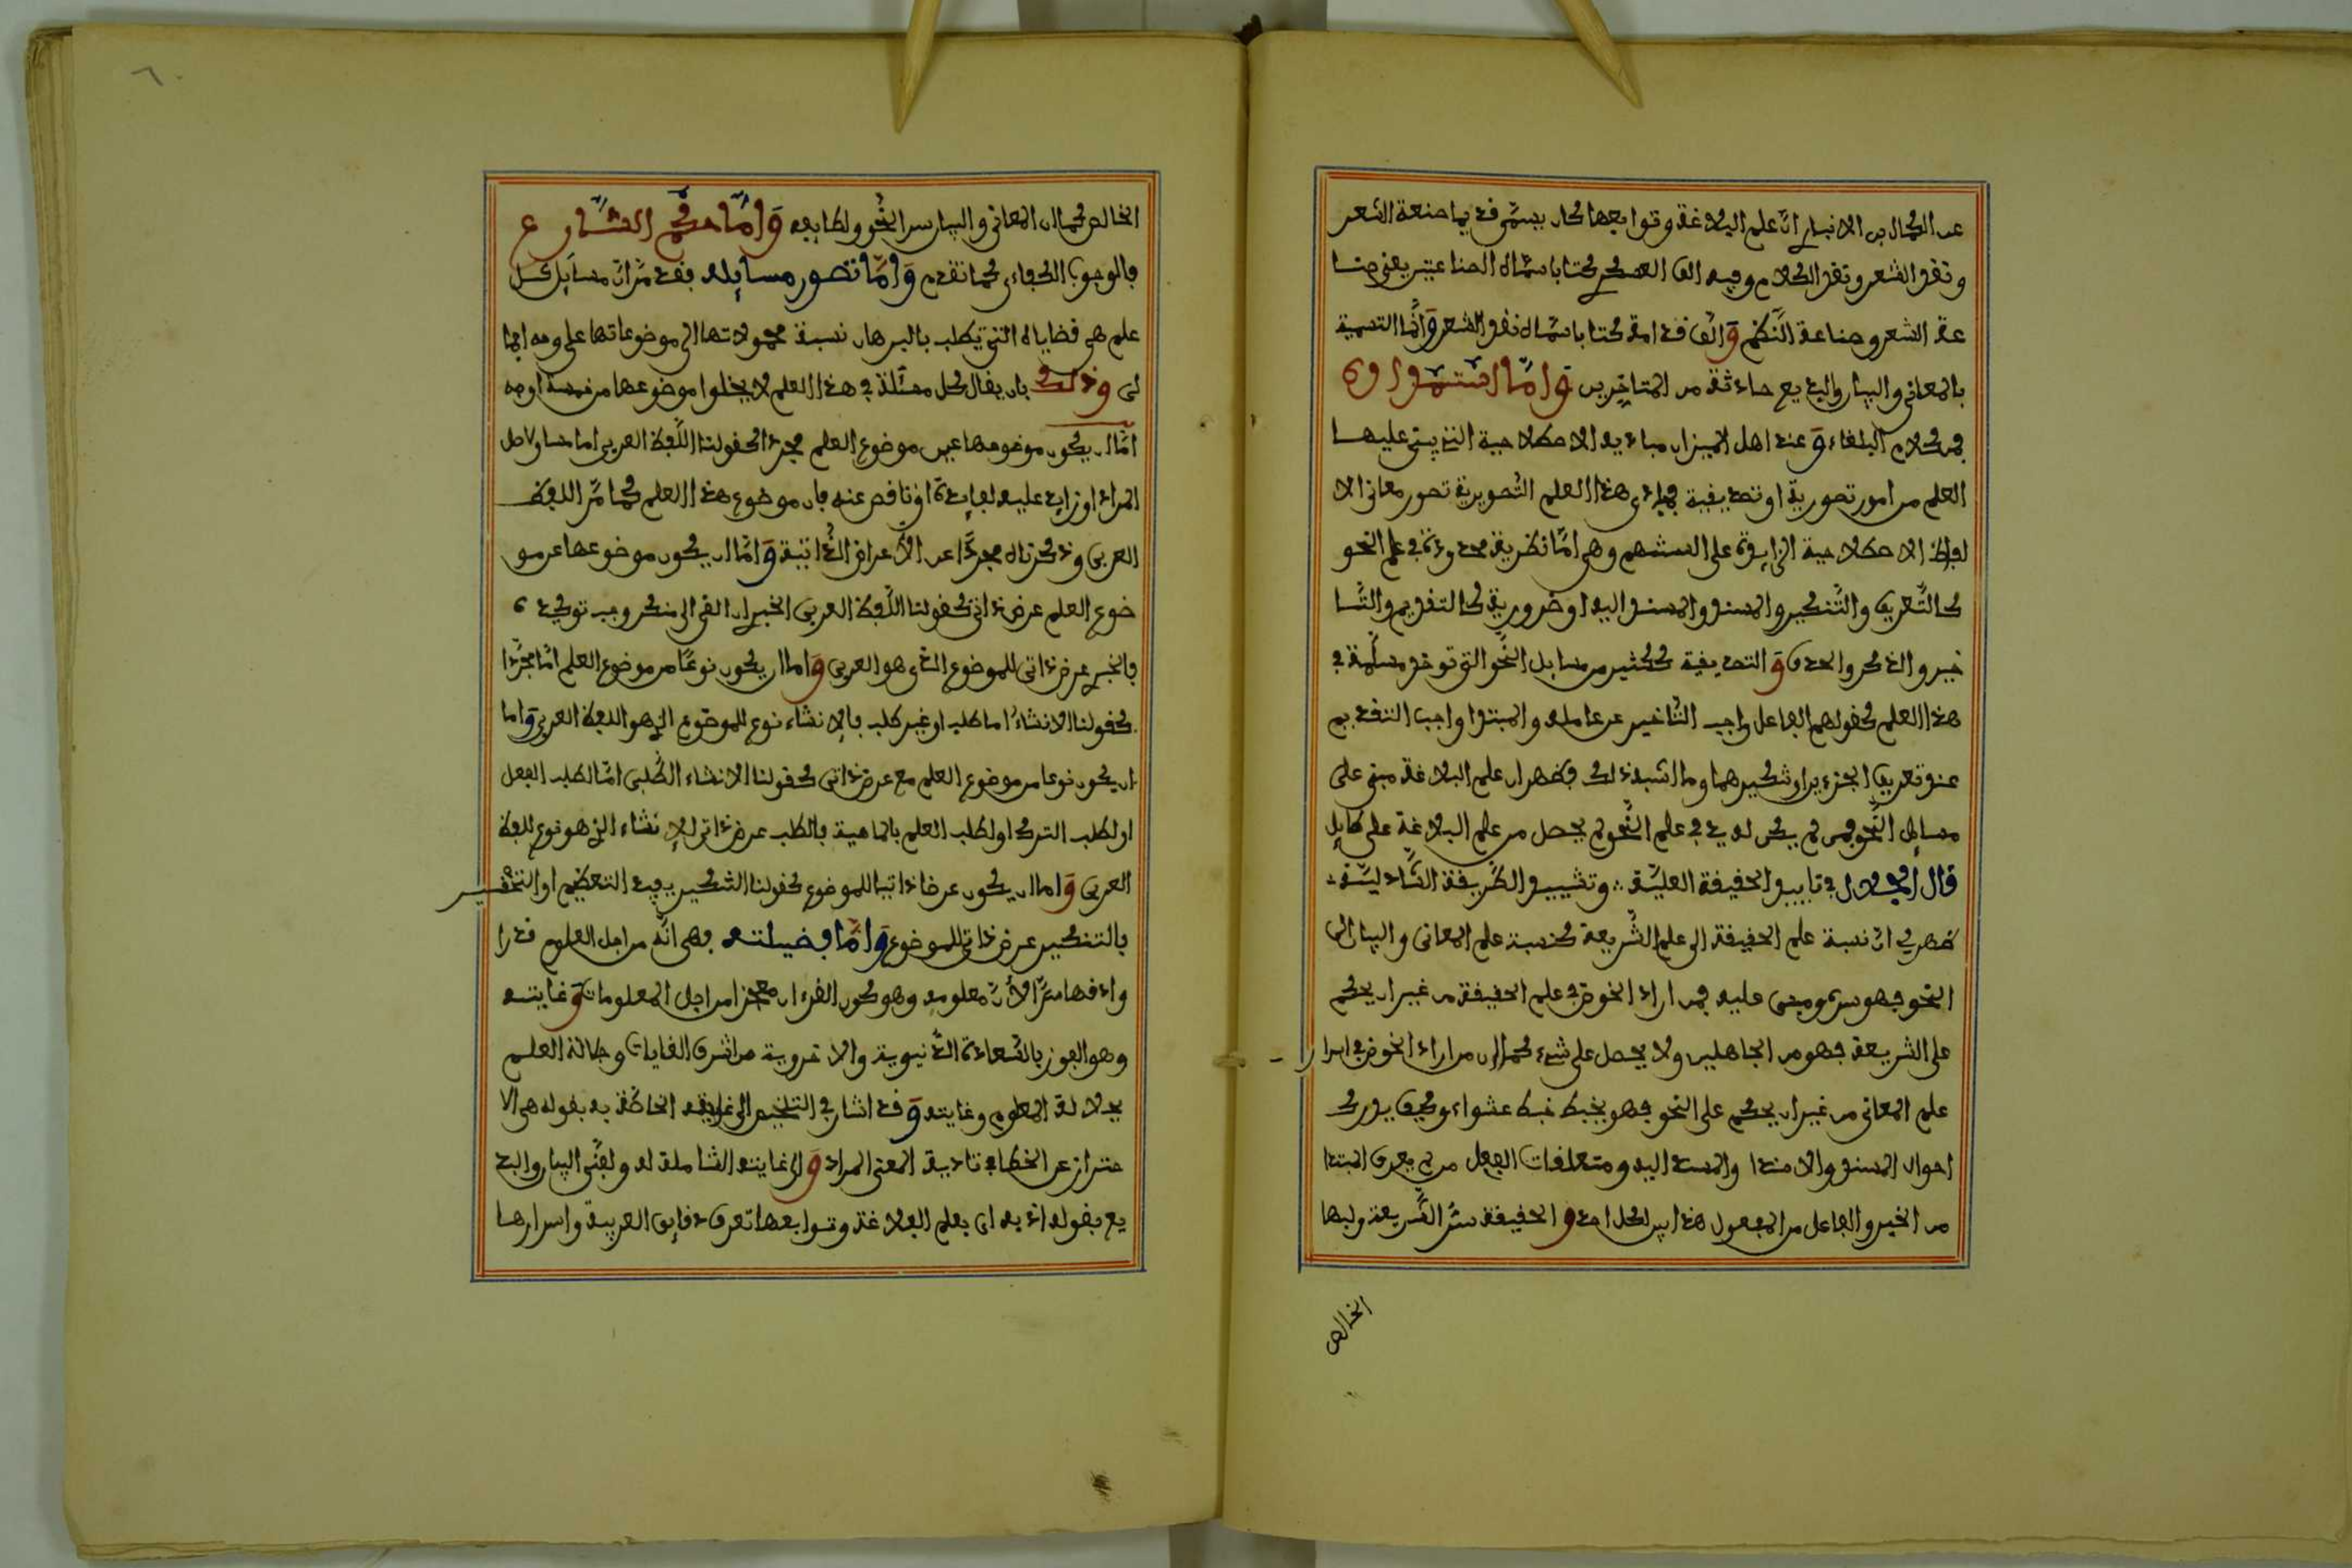 عن الكمال بن الانباري انّ علم البلاغة وتوابعها كان يسمّى قديما صنعة الشعر
ونقد الشعر ونقد الكلام وفيه الف العسكري كتابا سمّاه الصناعتين يعني صنا
عة الشعر وصناعة النّظم وَالّف قدامة كتابا سمّاه نقد الشعر وَانّما التسمية
بالمعاني والبيان والبديع حادثة من المتاخّرين وَامّا استمداده
فمن كلام البلغاء وَعند اهل الميزان مباديه الاصطلاحية التي ينبني عليها
العلم من امور تصورية او تصديقية فمبادي هذا العلم التّصورية تصور معاني الا
لفاظ الاصطلاحية الدايرة على السنتهم وهي امّا نظرية محدودة في علم النحو
كالتّعريف والتّنكير والمسند والمسند اليه او ضرورية كالتقديم والتّا
خير والذكر والحذف وَالتصديقية ككثير من مسايل النّحو التي توخذ مسلّمة في
هذا العلم كقولهم الفاعل واجب التّاخير عن عامله والمبتدا واجب التقديم
عند تعريف الجزءين او تنكيرهما وما اشبه ذلك فظهر ان علم البلاغة مبني على
مسايل النّحو فمن لم يكن له يد في علم النّحو لم يحصل من علم البلاغة على طايل
قال الجلال في تاييد الحقيقة العليّة وتشييد الطّريقة الشّاذليّة
ظهر لي انّ نسبة علم الحقيقة الى علم الشّريعة كنسبة علم المعاني والبيان الى
النحو فهو سره ومبني عليه فمن اراد الخوض في علم الحقيقة من غير ان يحكم
على الشريعة فهو من الجاهلين ولا يحصل على شيء كما ان من اراد الخوض في اسرار
علم المعاني من غير ان يحكم على النحو فهو يخبط خبط عشواء وكيف يدرك
احوال المسند والاسناد والمسند اليه ومتعلقات الفعل من لم يعرف المبتدا
من الخبر والفاعل من المفعول هذا بين لكل احد وَالحقيقة سرّ الشّريعة ولبها
الخالص
٦
الخالص كما ان المعاني والبيان سر النّحو ولطايفه وَامّا حكم الشّارع
فالوجوب الكفاءي كما تقدم وَامّا تصور مسايله فقد مرّ انّ مسايل كل
علم هي قضاياه التي يطلب بالبرهان نسبة محمولاتها الى موضوعاتها على وجه اجما
لي وذلك بان يقال كل مسئلة في هذا العلم لا يخلوا موضوعها من خمسة اوجه
امّا ان يكون موضوعها عين موضوع العلم مجردا كقولنا اللّفظ العربي اما مساو لاصل
المراد او زايد عليه لفايدة او ناقص عنه فان موضوع هذا العلم كما مرّ اللفظ
العربي وذكرناه مجرّدا عن الاعراض الذّاتية وَامّا ان يكون موضوعها عن مو
ضوع العلم عرض ذاتي كقولنا اللّفظ العربي الخبر ان القي الى منكر وجب توكيده
فالخبر عرض ذاتي للموضوع الذي هو العربي وَاما ان يكون نوعًا من موضوع العلم امّا مجرّدا
كقولنا الانشاء اما طلب او غير طلب فالانشاء نوع للموضوع الذي هو اللفظ العربي وَاما
ان يكون نوعا من موضوع العلم مع عرض ذاتي كقولنا الانشاء الطّلبي امّا لطلب الفعل
او لطلب الترك او لطلب العلم بالماهية فالطلب عرض ذاتي للانشاء الذي هو نوع للفظ
العربي وَاما ان يكون عرضا ذاتيا للموضوع كقولنا التنكير يفيد التعظيم او التّحقير
فالتنكير عرض ذاتي للموضوع وَامّا فضيلته فهي انّه من اجل العلوم قدرا
وادقها سرّا لانّ معلومه وهو كون القرءان معجزا من اجل المعلومات وَغايته
وهو الفوز بالسّعادة الدّنيوية والاخروية من اشرف الغايات وجلالة العلم
بجلالة المعلوم وغايته وَقد اشار في التلخيص الى غايته الخاصّة به بقوله هي الا
حتراز عن الخطا في تادية المعنى المراد وَالى غايته الشاملة له ولفنّي البيان والبد
يع بقوله اذ به اي بعلم البلاغة وتوابعها تعرف دقايق العربية واسرارها